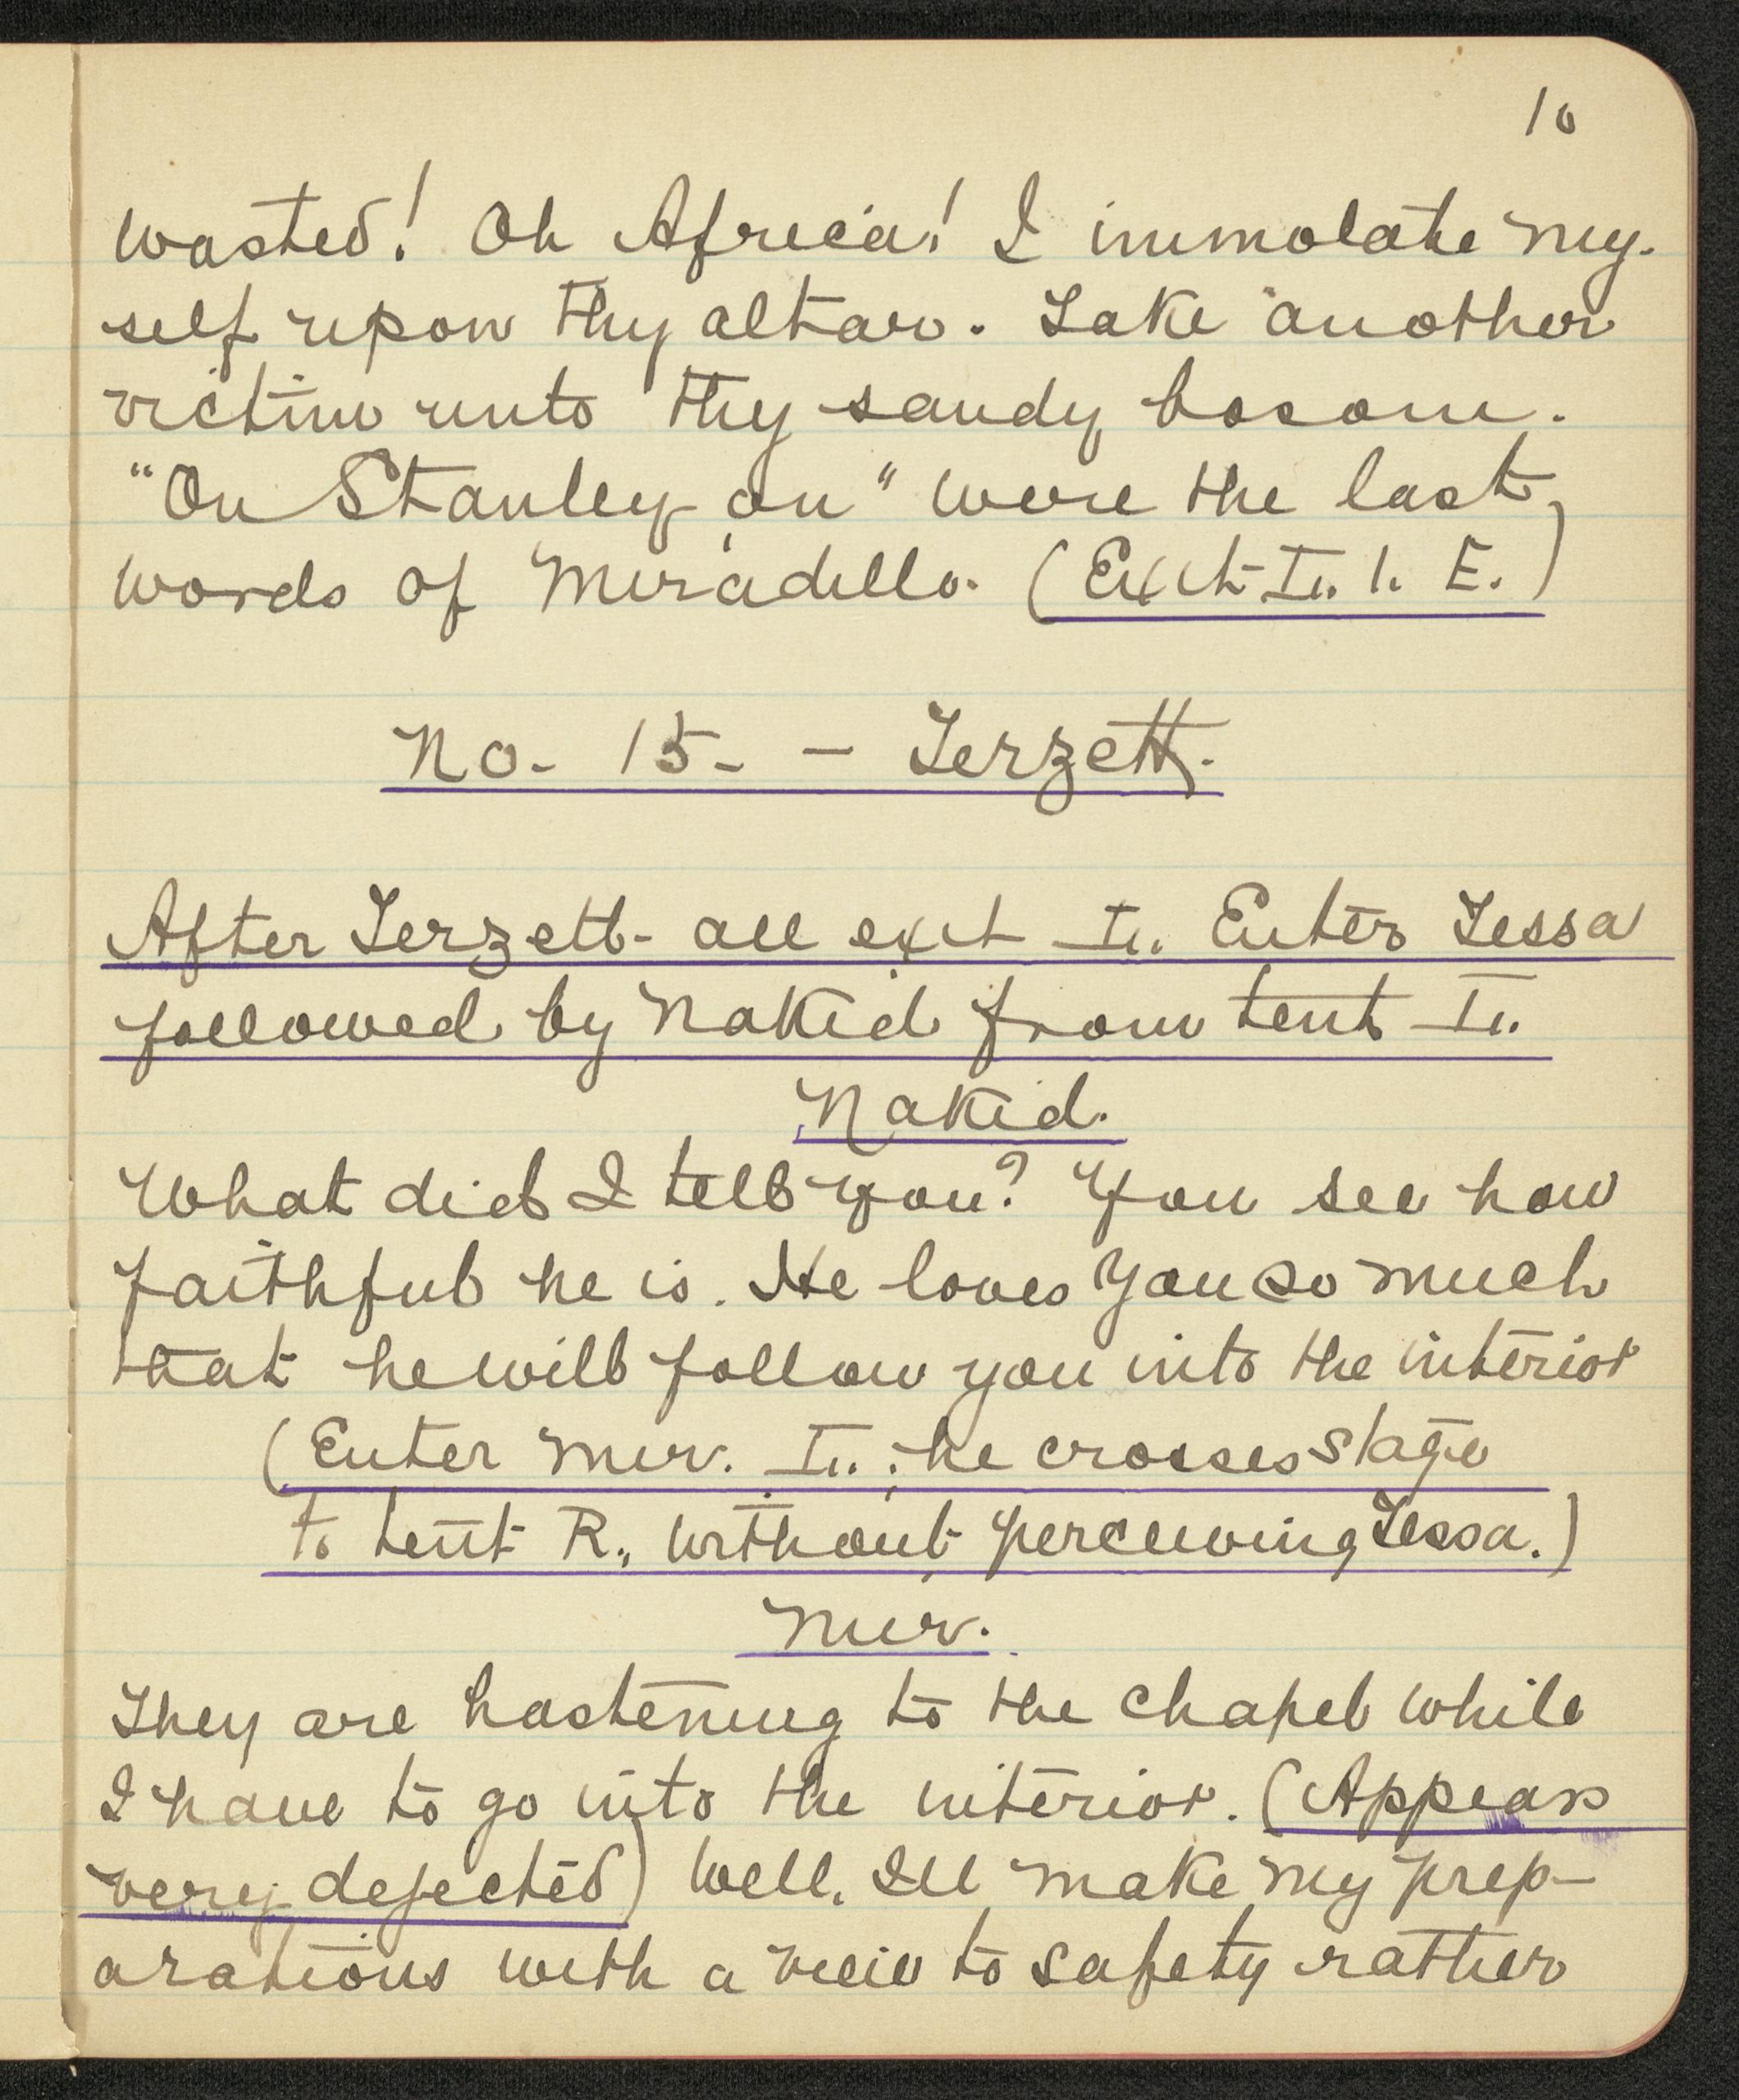 10
wasted! Oh Africa! I immolate my-
self upon thy altar. Take another
victim unto thy sandy bosom.
"On Stanley, on" were the last
words of Miradillo. (Exit L. 1. E.)
No. 15. – Terzett.
After Terzett- all exit L. Enter Tessa
followed by Nakid from tent L.
Nakid.
What did I tell you? You see how
faithful he is. He loves you so much
that he will follow you into the interior
(Enter Mir. L.; he crosses stage
to tent R., without perceiving Tessa.)
Mir.
They are hastening to the chapel while
I have to go into the interior. (Appears
very dejected) Well, I'll make my prep-
arations with a view to safety rather